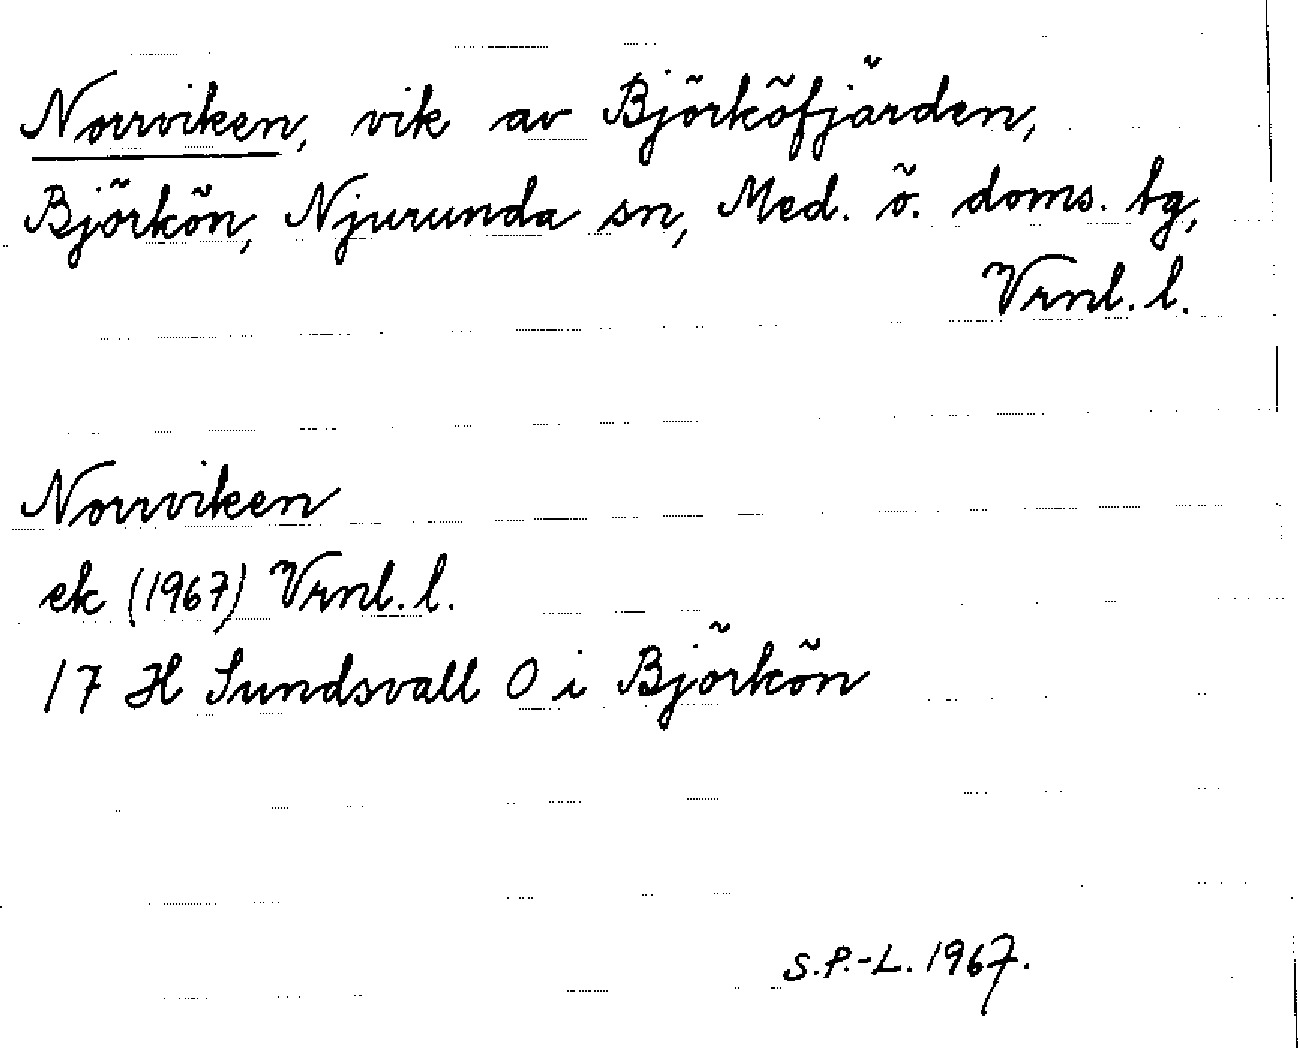 Norrviken, vik av Björköfjärden,
Björkön, Njurunda sn, Med. ö. doms. tg,
Vrnl. l.
Norrviken
ek (1967) Vrnl. l.
17 H Sundsvall O i Björkön
S.P.-L. 1967.